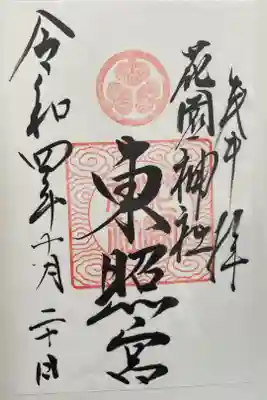 花岡神社
東照宮
令和四年十月二十日